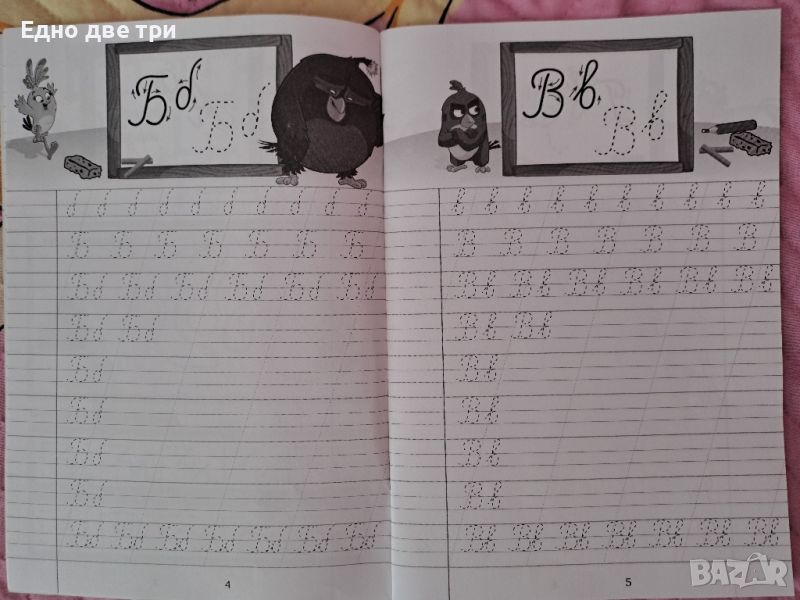 Едно две три
Б б Б б
б б б б б б б б б б
Б Б Б Б Б Б Б
Бб Бб Бб Бб Бб Бб
Бб Бб
Бб
Бб
Бб
Бб
Бб Бб Бб Бб Бб Бб Бб
4
В в В в
в в в в в в в в в в
В В В В В В В
Вв Вв Вв Вв Вв Вв
Вв Вв
Вв
Вв
Вв
Вв
Вв Вв Вв Вв Вв Вв Вв
5
BAZAR